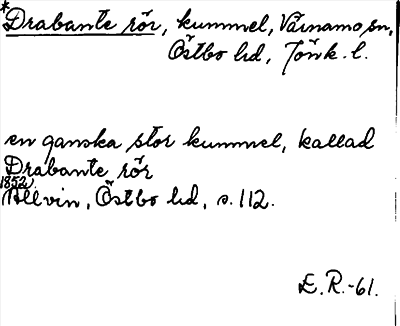 *Drabante rör, kummel, Värnamo sn,
Östbo hd, Jönk. l.
en ganska stor kummel, kallad
Drabante rör
1852
Allvin, Östbo hd, s. 112.
E. R.-61.